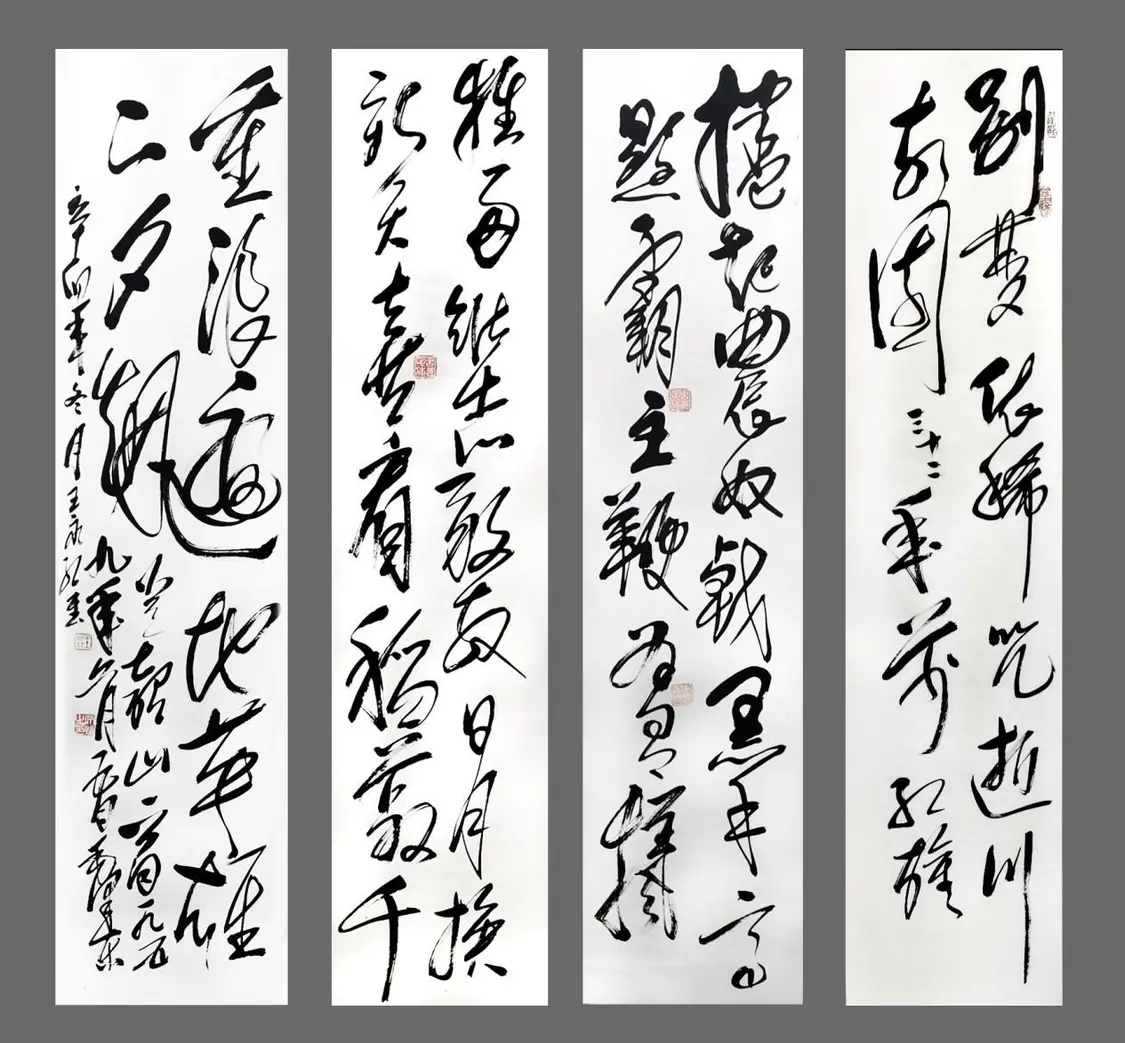 别梦依稀咒逝川
故園三十二年前红旗
捲起農奴戟黑手高
懸霸主鞭為有犧
牲多壮志敢教日月换
新天喜看稻菽千
重浪遍地英雄
下夕烟
韶山一首一九五
九年六月毛泽东
辛卯年冬月王永红書